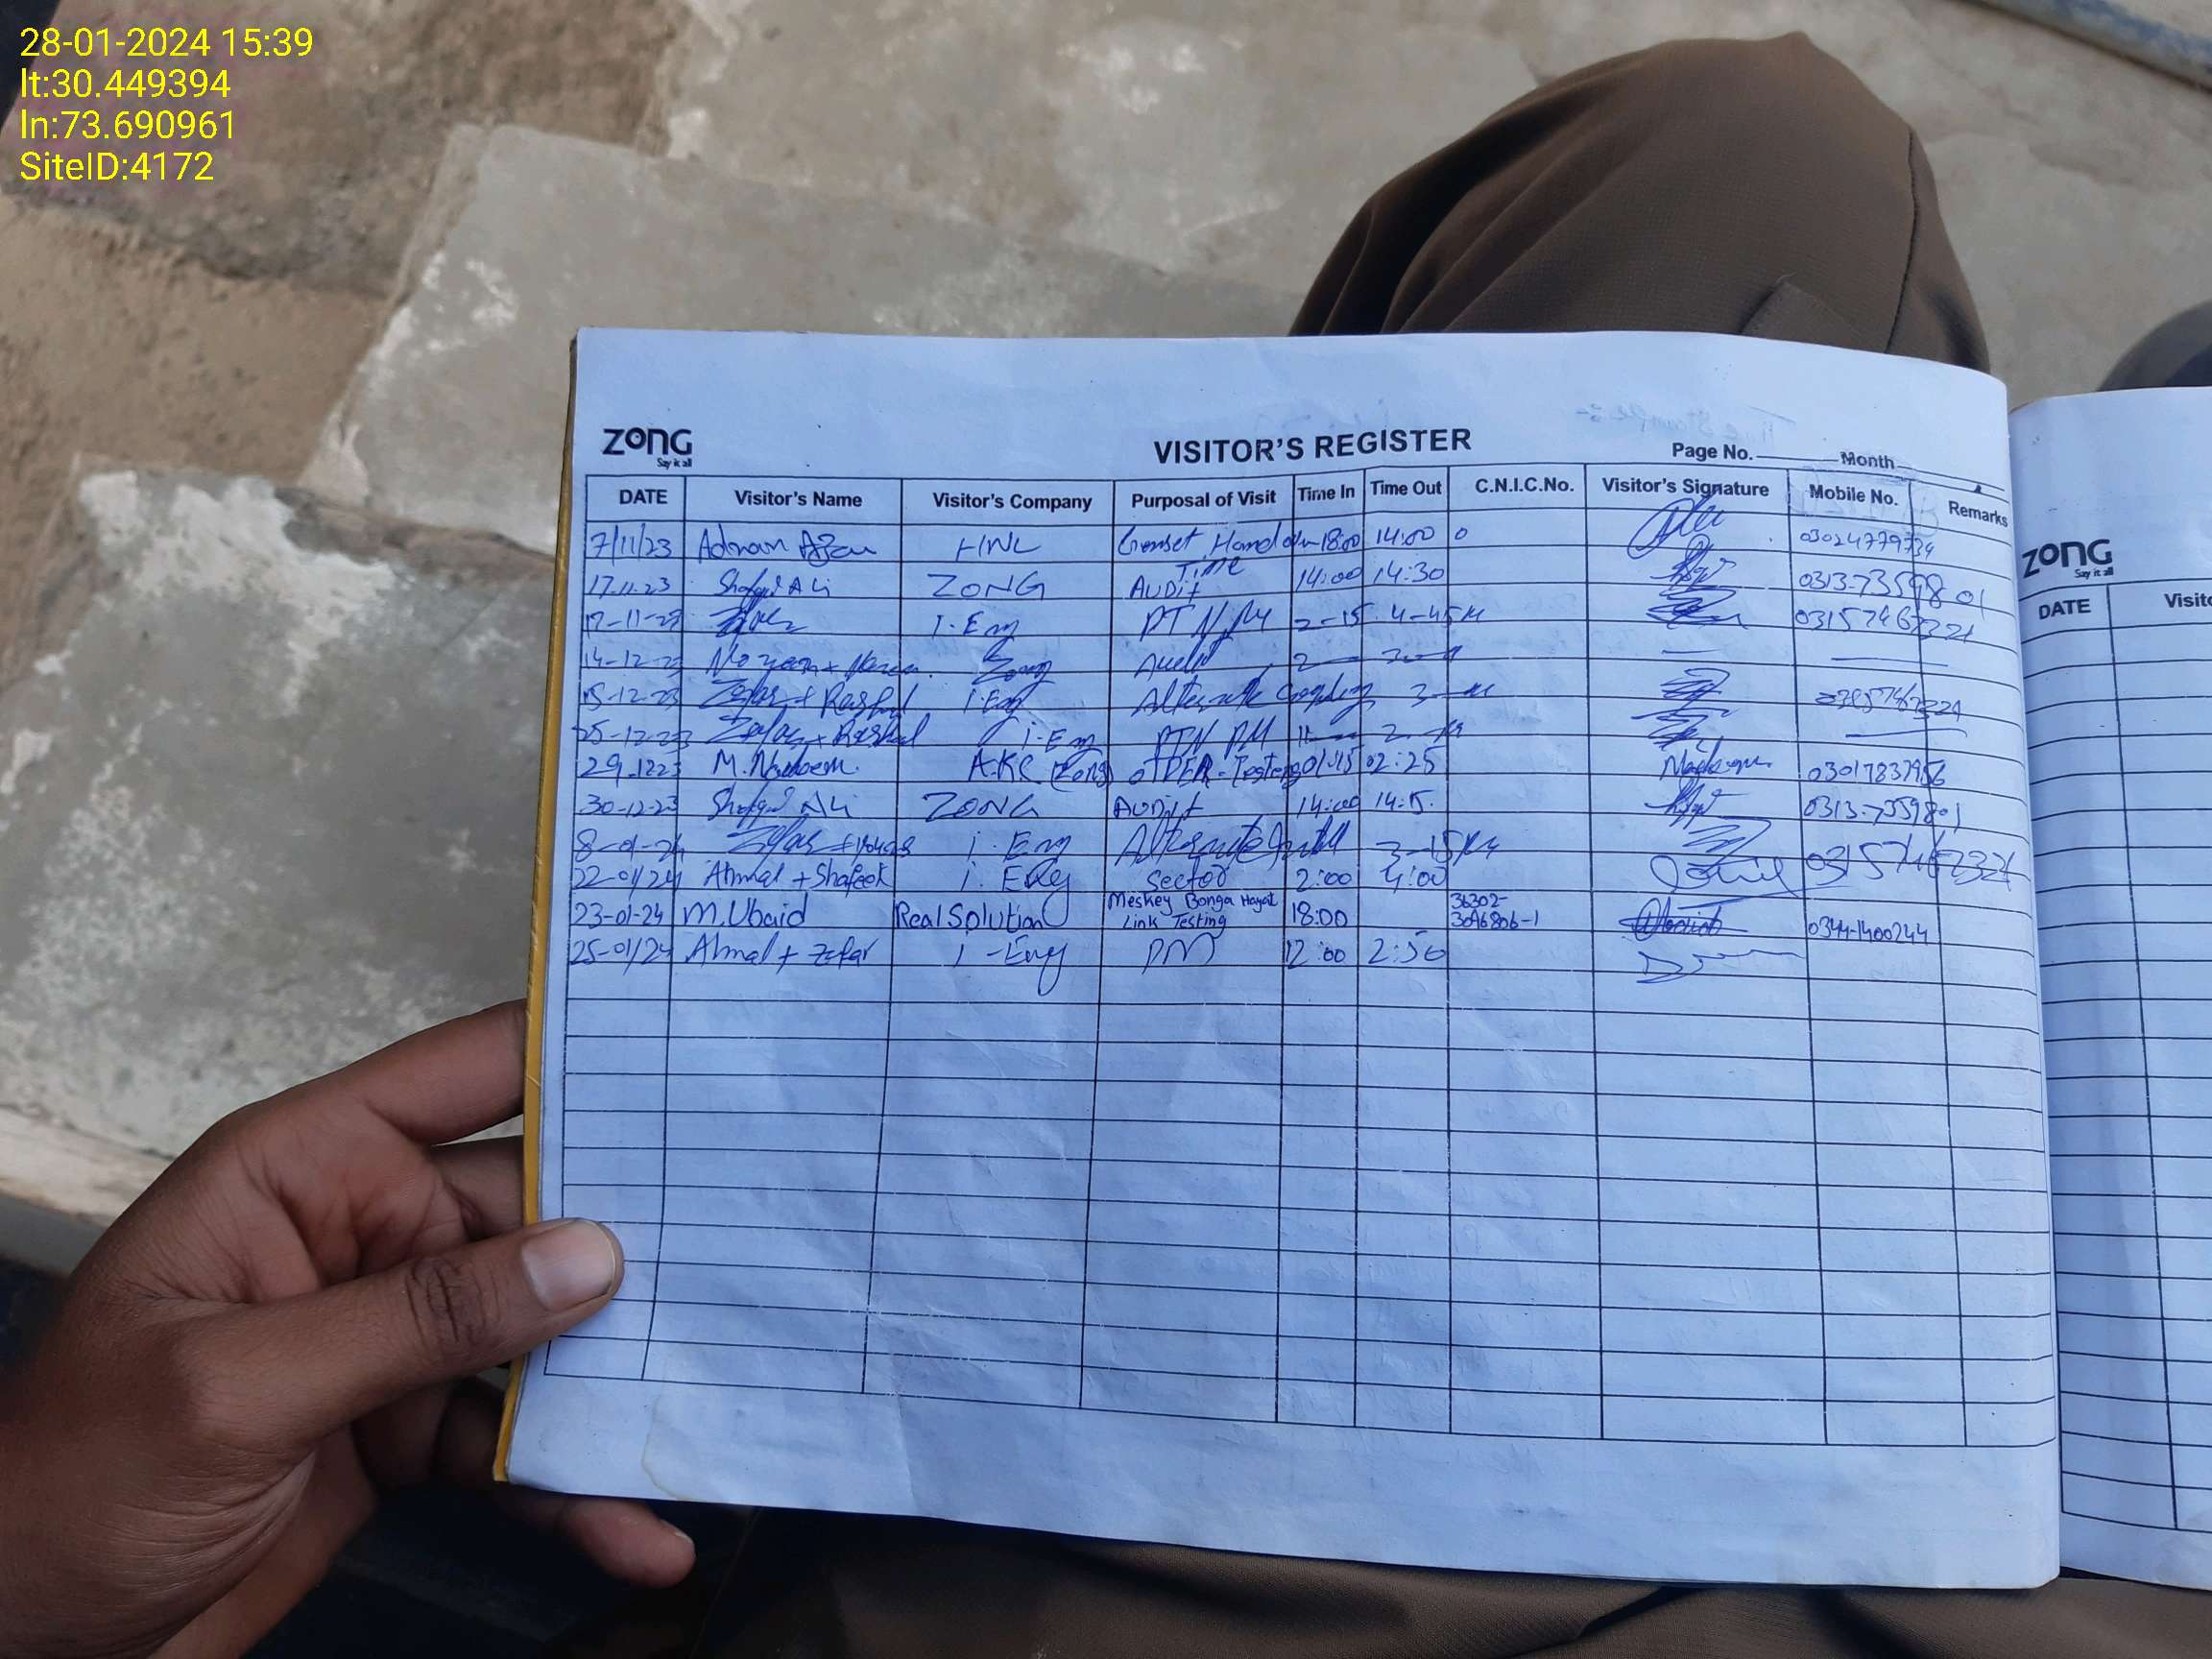 28-01-2024 15:39
lt:30.449394
ln:73.690961
SiteID:4172
ZONG
Say it all
VISITOR'S REGISTER
Page No. Month
DATE Visitor's Name Visitor's Company Purposal of Visit Time In Time Out C.N.I.C.No. Visitor's Signature Mobile No. Remarks
7/11/23 Adnan HNL Genset 18:00 14:00 0 03024779734
Time
17.11.23 Shafqat Ali ZONG Audit 14:00 14:30 0313-7359801
17-11-23 i-Eng PTN PM 2-15 4-45 03157467321
14-12-23 Zong Audit 2
15-12-23 Zafar + Rashid i-Eng Alternate 3
25-12-23 Zafar + Rashid i-Em PTN PM 11 2
29-1223 M. Nadeem A.K.R (Zong) OTDER-Testing 01:15 02:25 03017837956
30-12-23 Shafqat Ali ZONG AUDIT 14:00 14:15. 0313-7359801
8-01-24 Zafar i-Eng Alternate 3-15 03157467321
22-01/24 Ahmad + Shafeek i. Eng Sector 2:00 4:00
23-01-24 M.Ubaid Real Solution Meskey Bonga Hayat Link Testing 18:00 36302- 0344-1400244
25-01/24 Ahmad + Zafar i-Eng PM 12:00 2:50
ZONG
Say it all
DATE